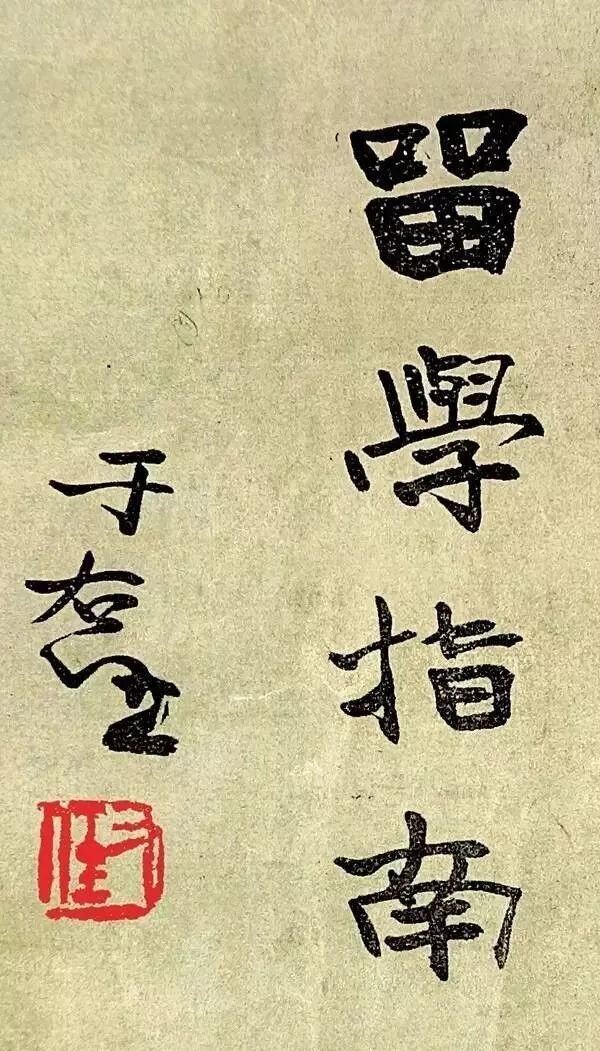 留學指南
于右任